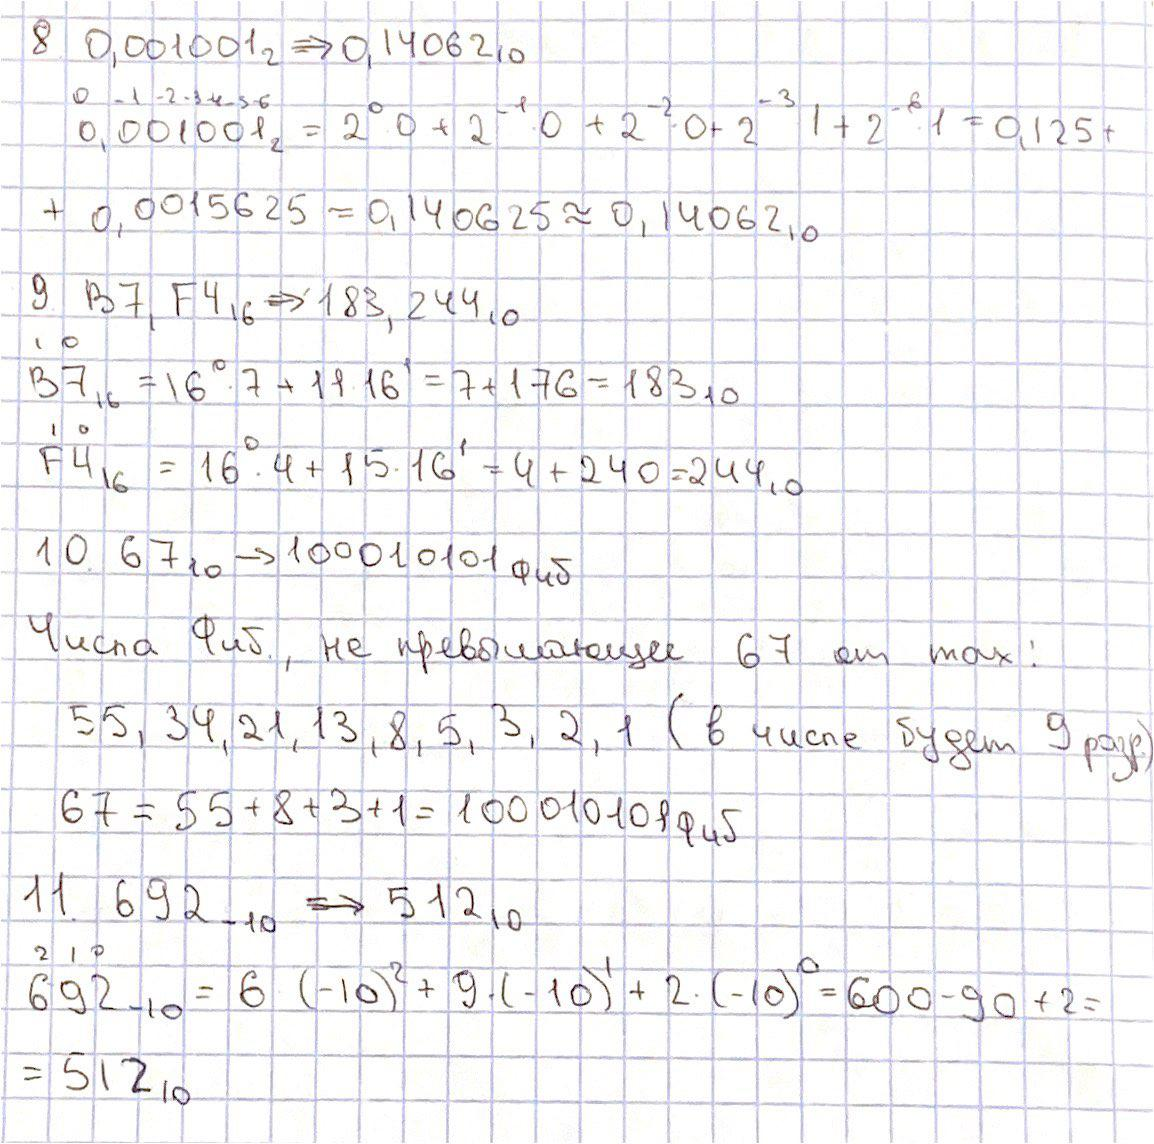 8 0,001001₂ ⇒ 0,14062₁₀
0 -1 -2 -3 -4 -5 -6
0,001001₂ = 2⁰·0 + 2⁻¹·0 + 2⁻²·0 + 2⁻³ 1 + 2⁻⁶·1 = 0,125 +
+ 0,0015625 = 0,140625 ≈ 0,14062₁₀
9 B7,F4₁₆ ⇒ 183,244₁₀
1 0
B7₁₆ = 16⁰·7 + 11·16¹ = 7 + 176 = 183₁₀
1 0
F4₁₆ = 16⁰·4 + 15·16¹ = 4 + 240 = 244₁₀
10. 67₁₀ → 100010101фиб
Числа Фиб., не превышающие 67 от max:
55, 34, 21, 13, 8, 5, 3, 2, 1 (в числе будет 9 разр.)
67 = 55 + 8 + 3 + 1 = 100010101фиб
11. 692₋₁₀ ⇒ 512₁₀
2 1 0
692₋₁₀ = 6·(-10)² + 9·(-10)¹ + 2·(-10)⁰ = 600 - 90 + 2 =
= 512₁₀